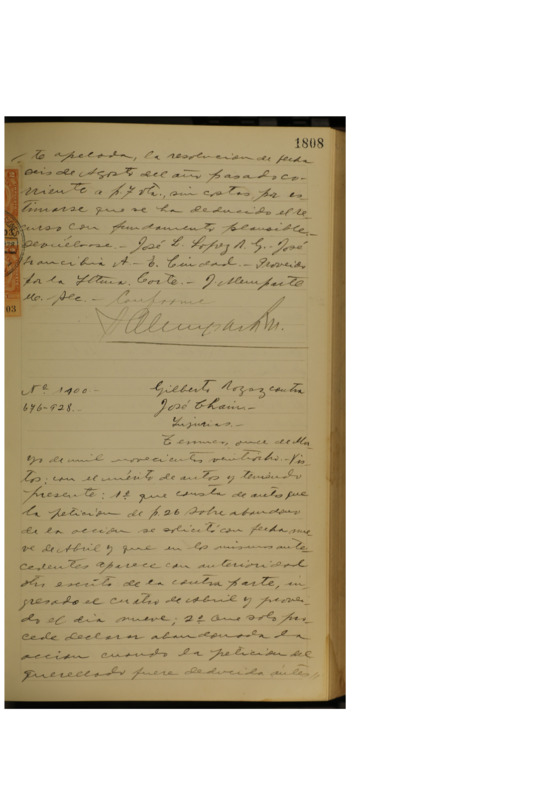 1808
te apelada, la resolucion de fecha
seis de Agosto del año pasado co-
rriente a f. 7 vta, sin costas por es-
timarse que se ha deducido el re-
curso con fundamento plausible.-
Devuélvase.- José L. Lopez R. G. José
Arancibia A - E. Ciudad.- Proveido
por la Iltma. Corte.- J Alemparte
etc. Sec.- Conforme
03
Nº 1400-
Gilberto contra
676-928.-
José Chain-
Injurias.-
Temuco, once de Ma-
yo de mil novecientos veintiocho.- Vis-
tos; con el mérito de autos y teniendo
presente: 1º que consta de autos que
la peticion de f. 26 sobre abandono
de la accion se solicitó con fecha nue-
ve de Abril y que en los mismos ante-
cedentes aparece con anterioridad
otro escrito de la contra parte, in-
gresado el cuatro de Abril y provei-
do el dia nueve; 2º que solo pro-
cede declarar abandonada la
accion cuando la peticion del
querellado fuere deducida ántes